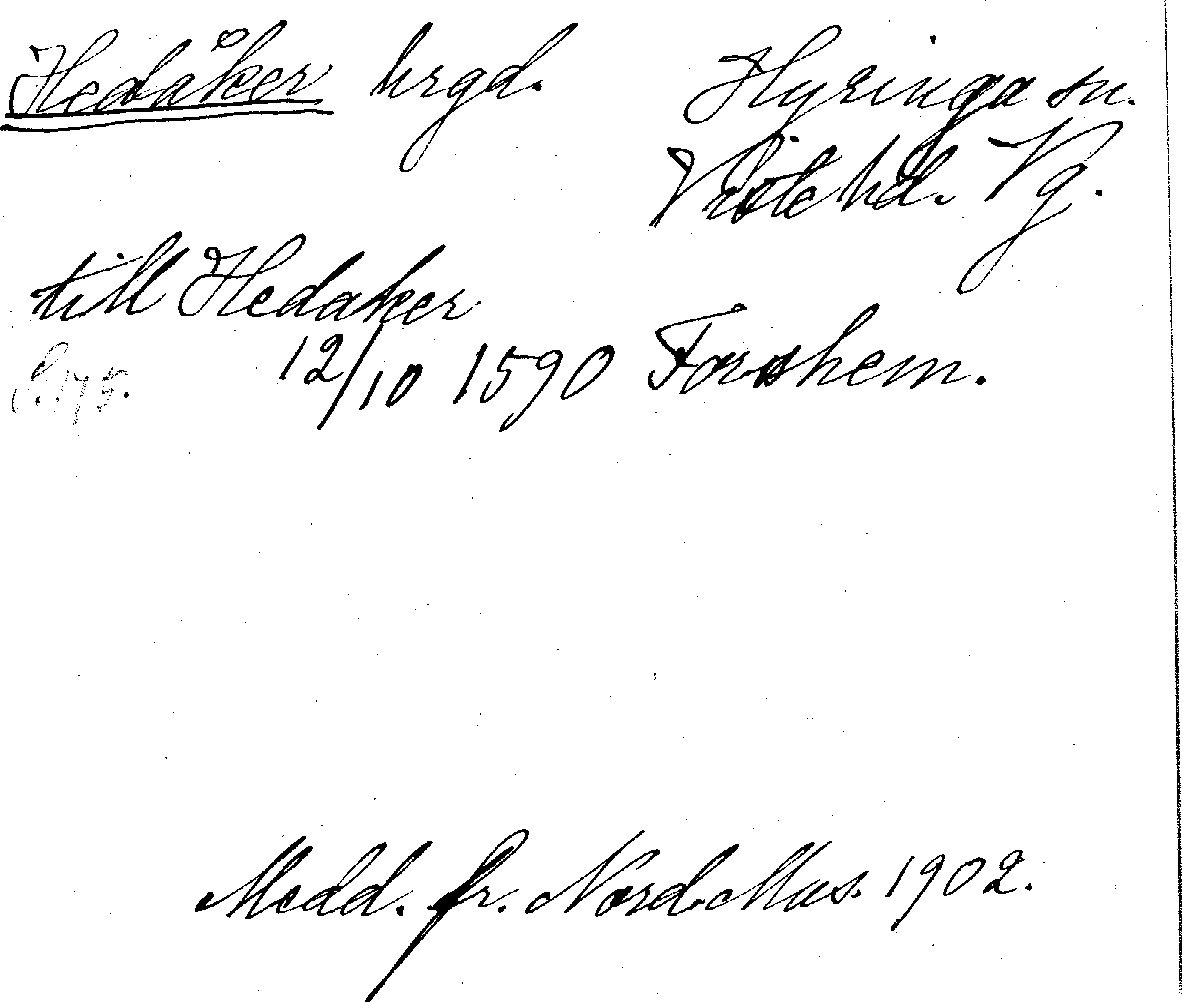 Hedåker hrgd. Hyringa sn.
Viste hd. Vg.
till Hedaker
S. 175. 12/10 1590 Forshem.
Medd. fr. Nord. Mus. 1902.